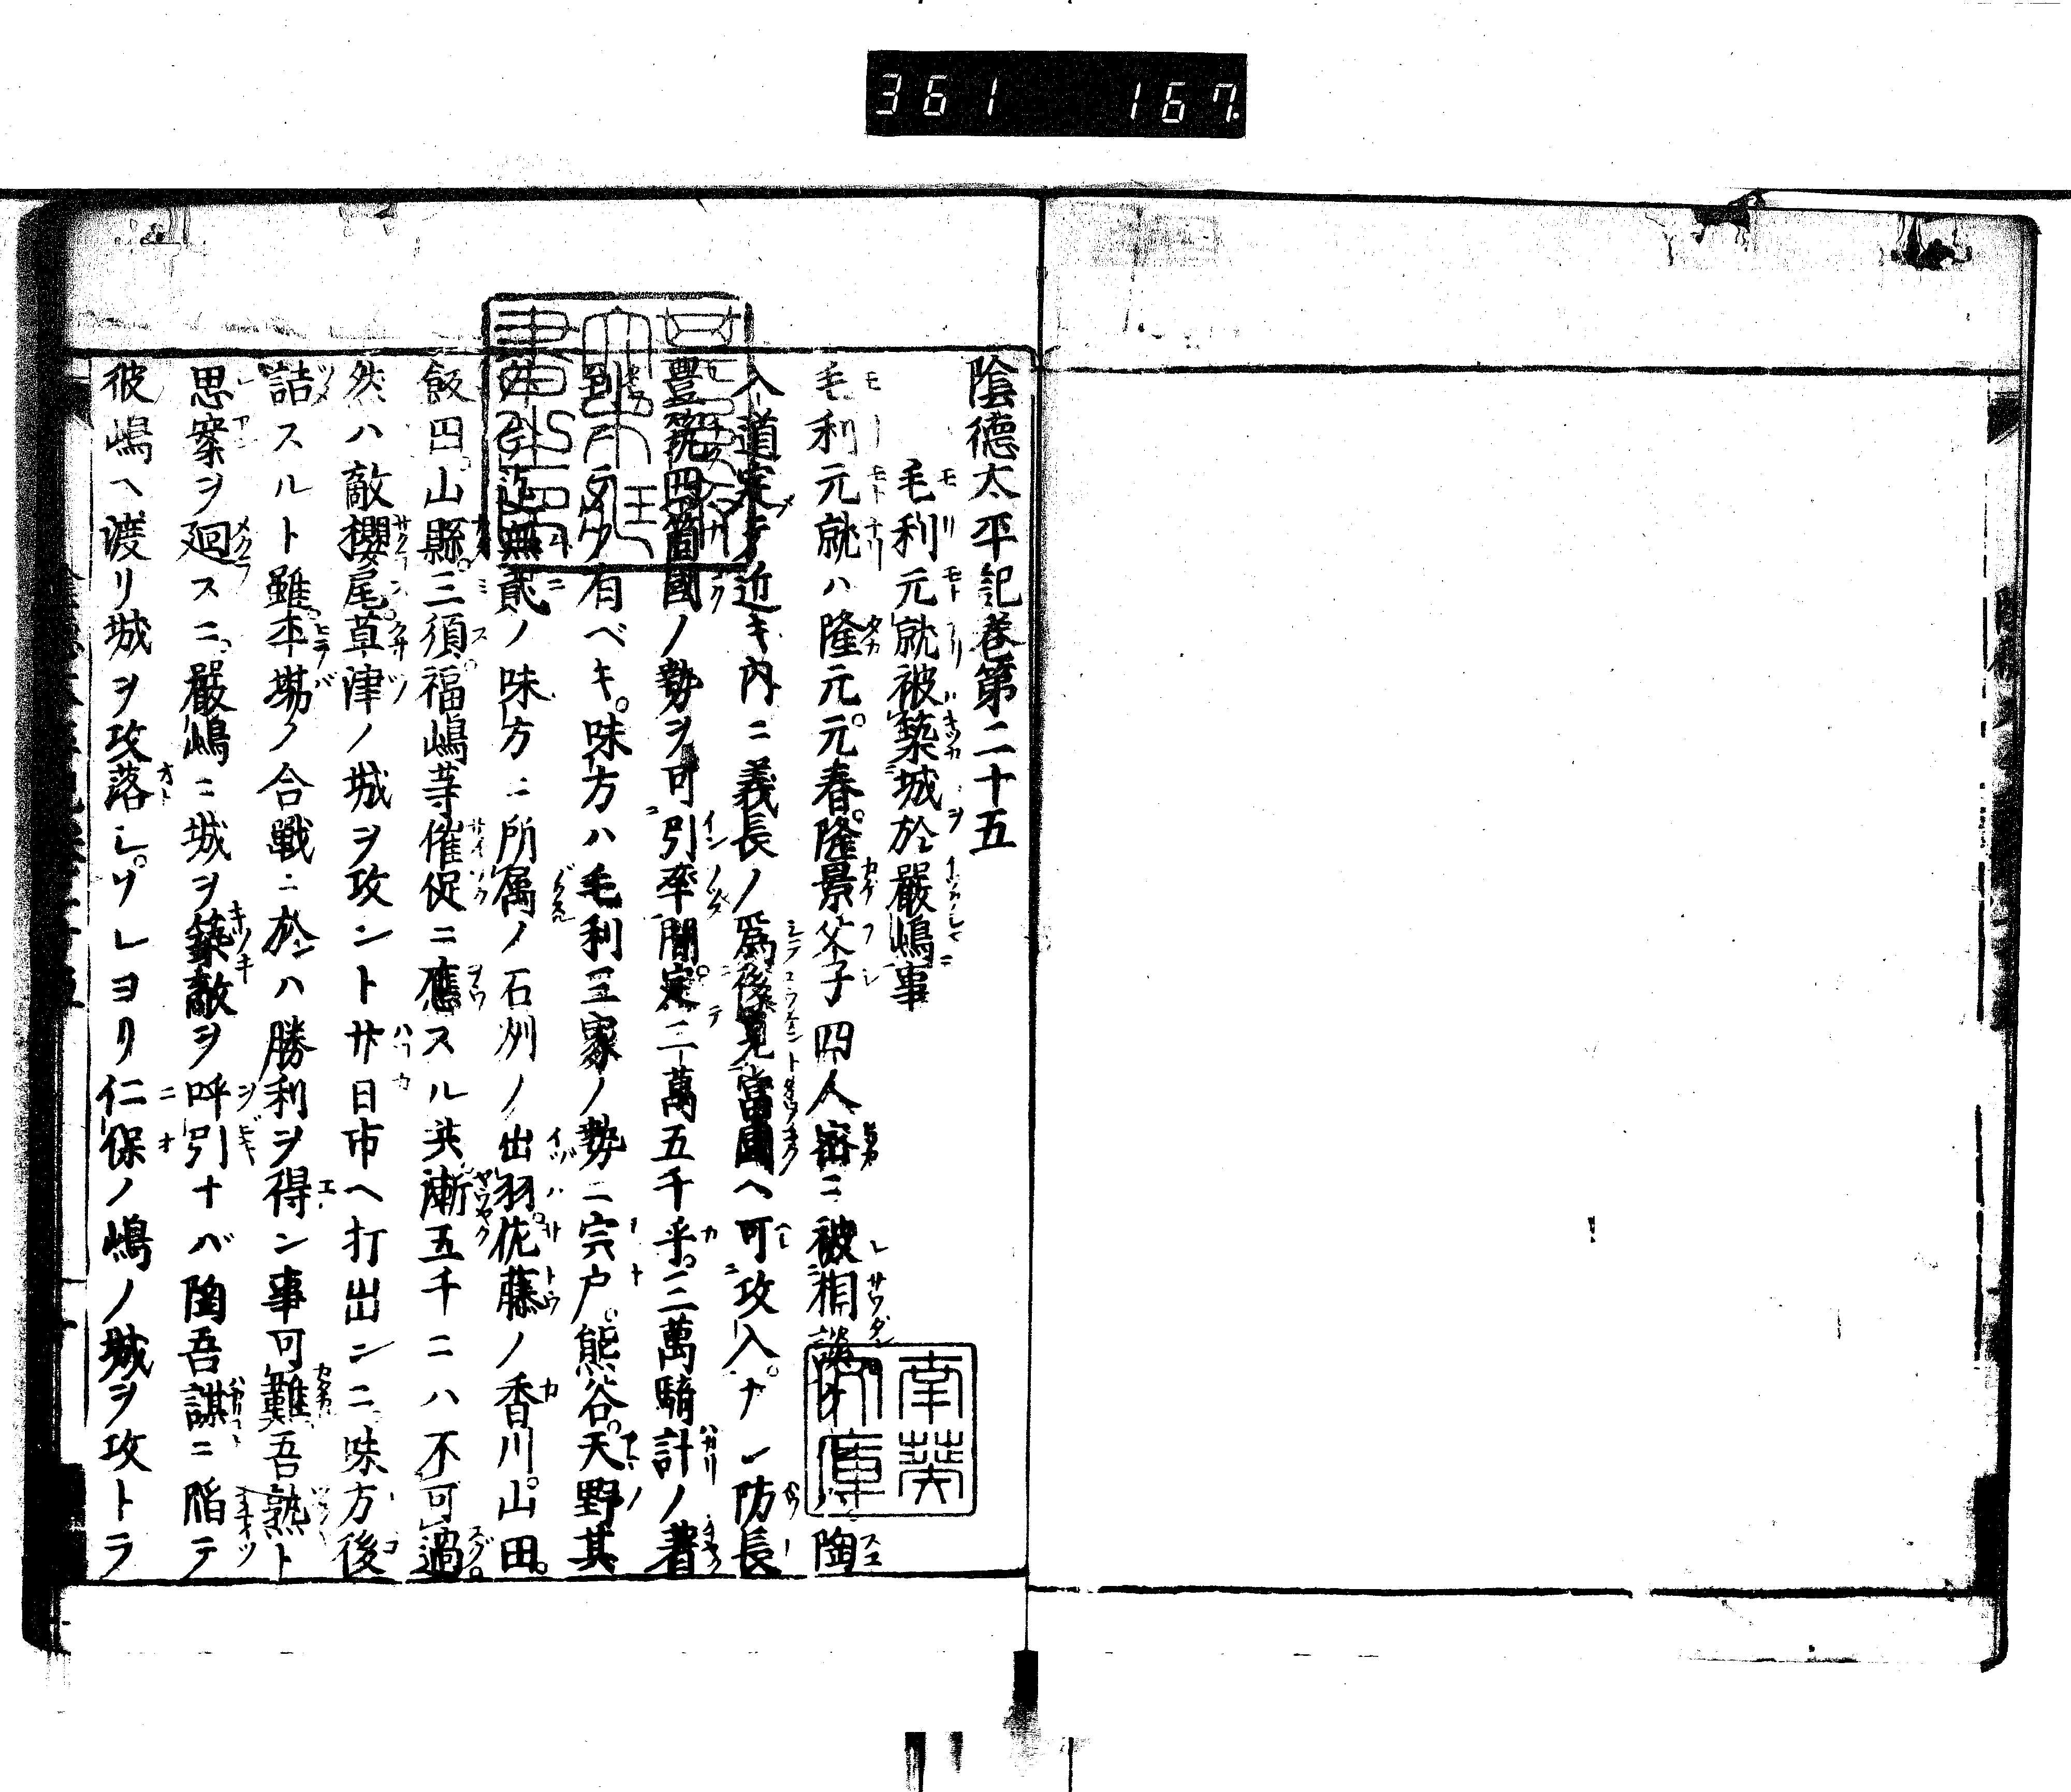 361 167
陰徳太平記巻第二十五
毛利元就被築城於嚴嶋事
毛利元就ハ隆元。元春。隆景父子四人密ニ被相談 陶
入道定テ近キ内ニ義長ノ爲後見當國ヘ可攻入。ナレ防長
豊筑四箇國ノ勢ヲ可引率間。定テ二萬五千乎。三萬騎計ノ著
到ニ 有ベキ。味方ハ毛利三家ノ勢ニ宍戸。熊谷。天野其
外 迄無貳ノ味方ニ所属ノ石州ノ出羽。佐藤ノ香川。山田。
飯田。山縣。三須。福嶋等催促ニ應スル共漸五千ニハ不可過。
然ハ敵櫻尾。草津ノ城ヲ攻ントサ日市ヘ打出ンニ味方後
詰スルト雖。平場ノ合戰ニ於ハ勝利ヲ得ン事可難。吾熟ト
思案ヲ廻スニ。嚴嶋ニ城ヲ築。敵ヲ呼引ナバ陶吾謀ニ陷テ
彼嶋ヘ渡リ城ヲ攻落シ。ソレヨリ仁保ノ嶋ノ城ヲ攻トラ